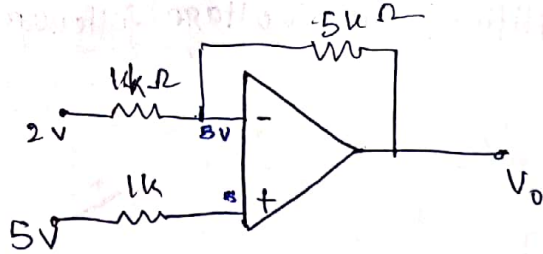 .5kΩ
1kΩ
2V
5V
-
1k
5
+
5V
V₀